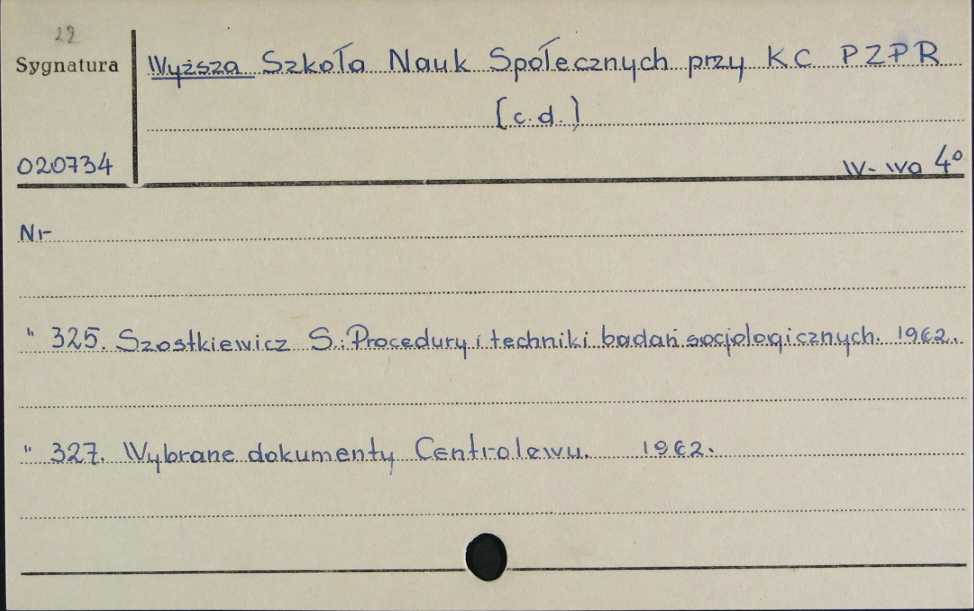 22
Sygnatura
Wyższa Szkoła Nauk Społecznych przy KC PZPR
[c.d.]
020734
W-wa 4°
Nr
" 325. Szostkiewicz S.: Procedury i techniki badań socjologicznych. 1962.
" 327. Wybrane dokumenty Centrolewu. 1962.